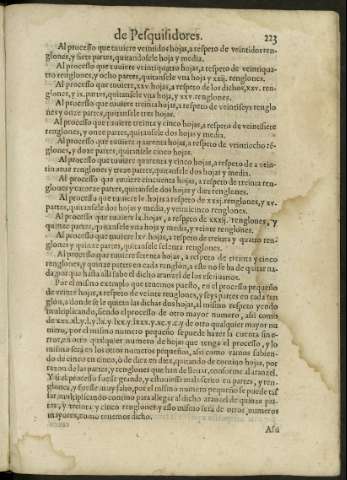 de Pesquisidores. 223
Al processo que tuuiere veintidos hojas, a respeto de veintidos ren-
glones, y siete partes, quitansele hoja y media.
Al processo que tuuiere veintiquatro hojas, a respeto de veintiqua-
tro renglones, y ocho partes, quitansele vna hoja y xxij. renglones.
Al processo que tuuiere, xxv. hojas, a respeto de los dichos, xxv. ren-
glones, y ix. partes, quitansele vna hoja, y xxv. renglones.
Al processo que tuuiere treinta hojas, a respeto de veintiseys renglo
nes y onze partes, quitansele tres hojas.
Al processo que tuuiere treinta y cinco hojas, a respeto de veintisiete
renglones, y onze partes, quitansele dos hojas y media.
Al processo que tuuiere quarenta hojas, a respeto de veintiocho re-
glones, y doze partes, quitansele cinco hojas.
Al processo que tuuiere quarenta y cinco hojas, a respeto de a vein-
tinueue renglones y treze partes, quitansele dos hojas y media.
Al processo que tuuiere cincuenta hojas, a respeto de treinta ren-
glones y catorze partes, quitansele dos hojas y diez renglones.
Al processo que tuuiere lv. hojas a respeto de xxxj. renglones, y xv.
partes, quitansele dos hojas y media, y veinticinco renglones.
Al processo que tuuiere lx. hojas, a respeto de xxxij. renglones, y
quinze partes, quitansele vna hoja y media, y veinte renglones.
Al processo que tuuiere lxv. hojas, a respeto de treinta y quatro ren-
glones y quinze partes, quitansele setenta renglones.
Al processo que tuuiere setenta hojas, a respeto de treinta y cinco
renglones, y quinze partes en cada renglon, a este no se ha de quitar na-
da, porque hasta alli sabe el dicho aranzel de los escriuanos.
Por el mismo exemplo que tenemos puesto, en el processo pequeño
de veinte hojas, a respeto de veinte renglones, y seys partes en cada ren
glon, a donde se le quitan las dichas dos hojas, al mismo respeto yendo
multiplicando, siendo el processo de otro mayor numero, assi como
de xxx. xl. y l. y lx. y lxx. y lxxx. y xc. y c. y de otro qualquier mayor nu
mero, por el mismo numero pequeño se puede hazer la cuenta sin e-
rror, en otro qualquier numero de hojas que tenga el processo, y lo
mismo será en los otros numeros pequeños, assi como vamos subien-
do de cinco en cinco, o de diez en diez, quitando de tantas hojas, por
razon de las partes, y renglones que han de lleuar, conforme al aranzel.
Y si el processo fuesse grande, y estuuiesse mal escrito en partes, y ren-
glones, y fuesse muy falto, por el mismo numero pequeño se puede tas
sar, multiplicando contino para allegar al dicho aranzel de quinze par-
tes, y treinta y cinco renglones, y esto mismo será de otros numeros
mayores, como tenemos dicho.
Assi